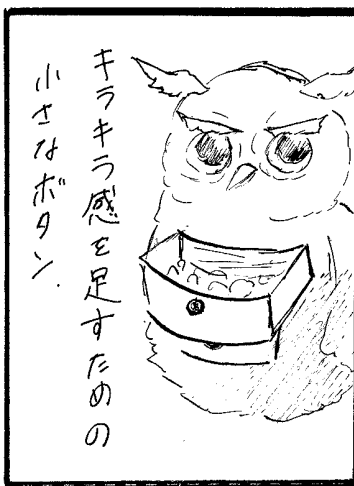 キラキラ感を足すための
小さなボタン.